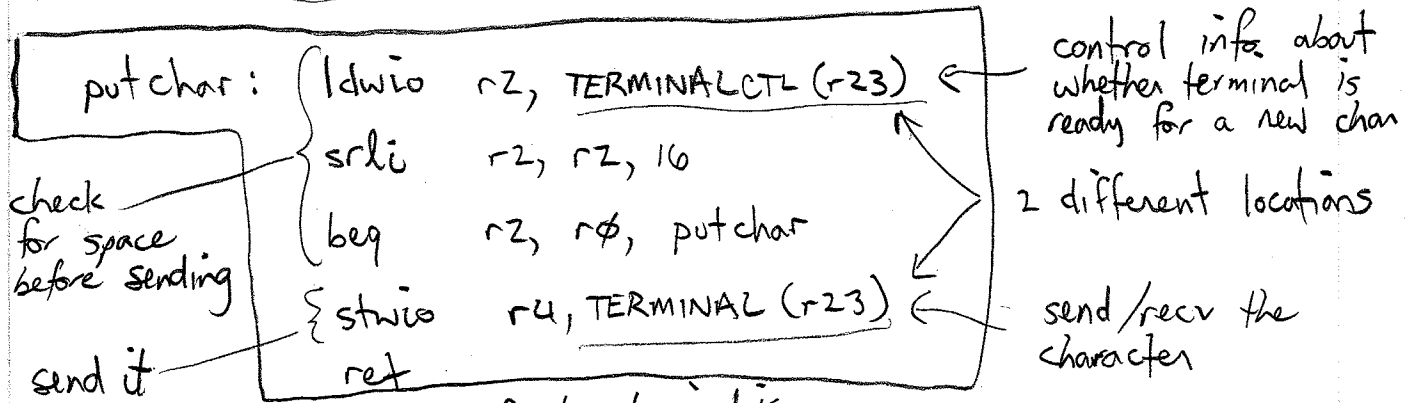 putchar: ldwio r2, TERMINALCTL (r23)
srli r2, r2, 16
beq r2, r0, putchar
stwio r4, TERMINAL (r23)
ret
check
for space
before sending
send it
control info. about
whether terminal is
ready for a new char
2 different locations
send/recv the
character